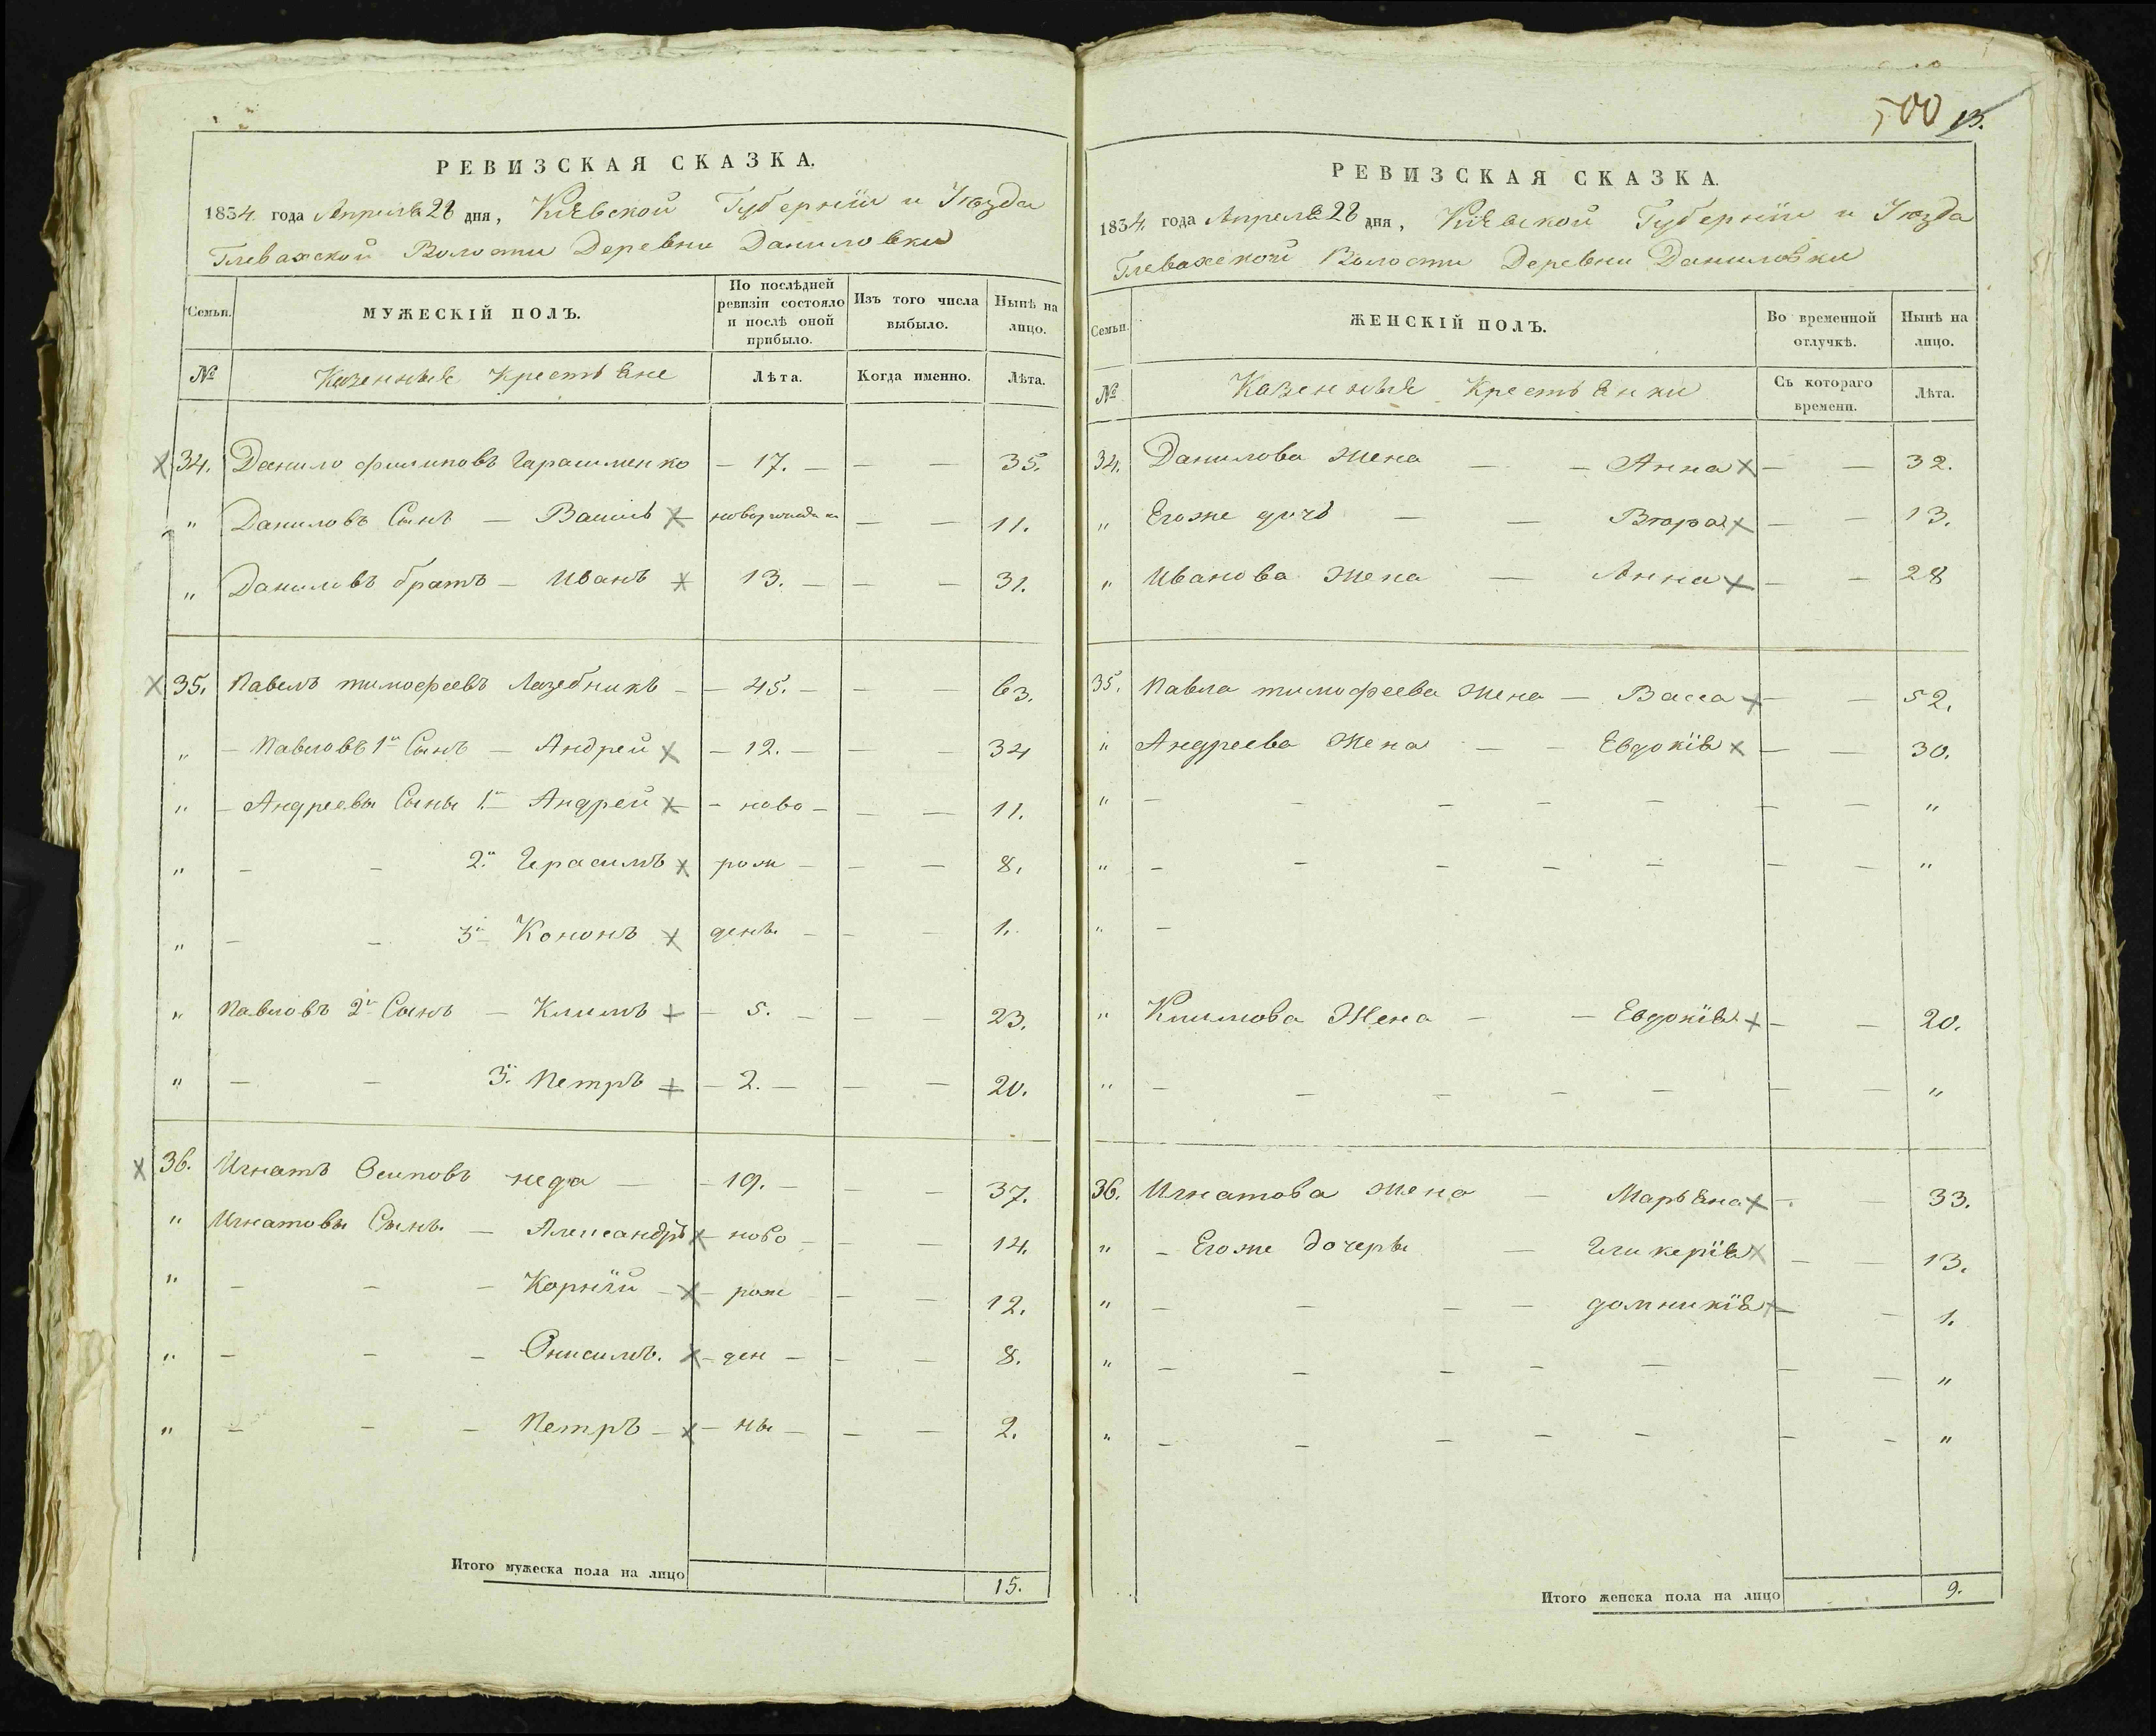 РЕВИЗСКАЯ СКАЗКА.
1834. года Апреля 28 дня, Кіевской Губерніи и Уѣзда
Глевахской Волости Деревни Даниловки
Семьи. МУЖЕСКІЙ ПОЛЪ. По послѣдней ревизіи состояло и послѣ оной прибыло. Изъ того числа выбыло. Нынѣ на лицо.
№ Казенныя Крестьяне Лѣта. Когда именно. Лѣта.
34. Данило Филиповъ Гарашменко — 17. — — — 35.
" Даниловъ Сынъ — Василь новорожден — — 11.
" Даниловъ братъ — Иванъ 13. — — — 31.
35. Павелъ тимофеевъ Лазебникъ — — 45. — — — 63.
" — Павловъ 1й Сынъ — Андрей — 12. — — — 34
" — Андреевы Сыны 1й Андрей — ново — — — 11.
" — — 2й Герасимъ рож — — — 8.
" — — 3й Кононъ дены — — — 1.
" Павловъ 2й Сынъ — Климъ — 5. — — — 23.
" — — 3й Петръ — 2. — — — 20.
36. Игнатъ Осиповъ неда — — 19. — — — 37.
" Игнатовы Сыны. — Александръ — ново — — — 14.
" — — — Корнѣй — — рож — — 12.
" — — — Онисимъ. — ден — — — 8.
" — — — Петръ — — ны — — — 2.
Итого мужеска пола на лицо 15.
500 13.
РЕВИЗСКАЯ СКАЗКА.
1834. года Апреля 28 дня, Кіевской Губерніи и Уѣзда
Глевахской Волости Деревни Даниловки
Семьи. ЖЕНСКІЙ ПОЛЪ. Во временной отлучкѣ. Нынѣ на лицо.
№ Казенныя Крестьянки Съ котораго времени. Лѣта.
34. Данилова Жена — — Анна — — 32.
" Егоже дочь — — Втора — — 13.
" Иванова Жена — Анна — — 28
35. Павла тимофеева Жена — Васса — — 52.
" Андреева Жена — — Евдокія — — 30.
" — — — — — — — "
" — — — — — — — "
" —
" Климова Жена — — Евдокія — — 20.
" — — — — — — — "
36. Игнатова жена — Марьяна — — 33.
" — Егоже дочеры — Гликерія — — 13.
" — — — — домникія — — 1.
" — — — — — — — "
" — — — — — — — "
Итого женска пола на лицо 9.